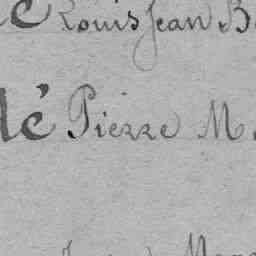 é Louis Jean B
lé Pierre M